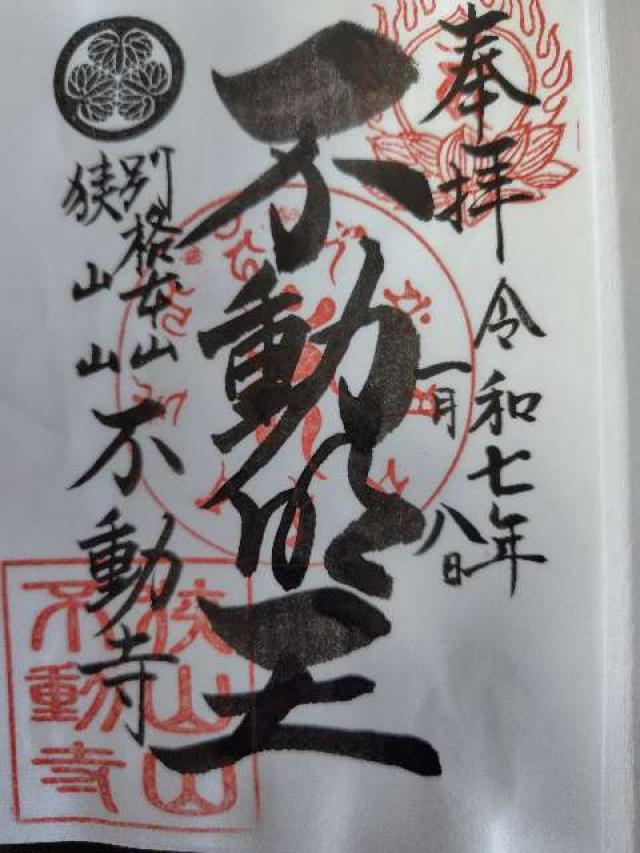 奉拝
令和七年
一月八日
不動明王
別格本山
狭山山不動寺
狭山山
不動寺